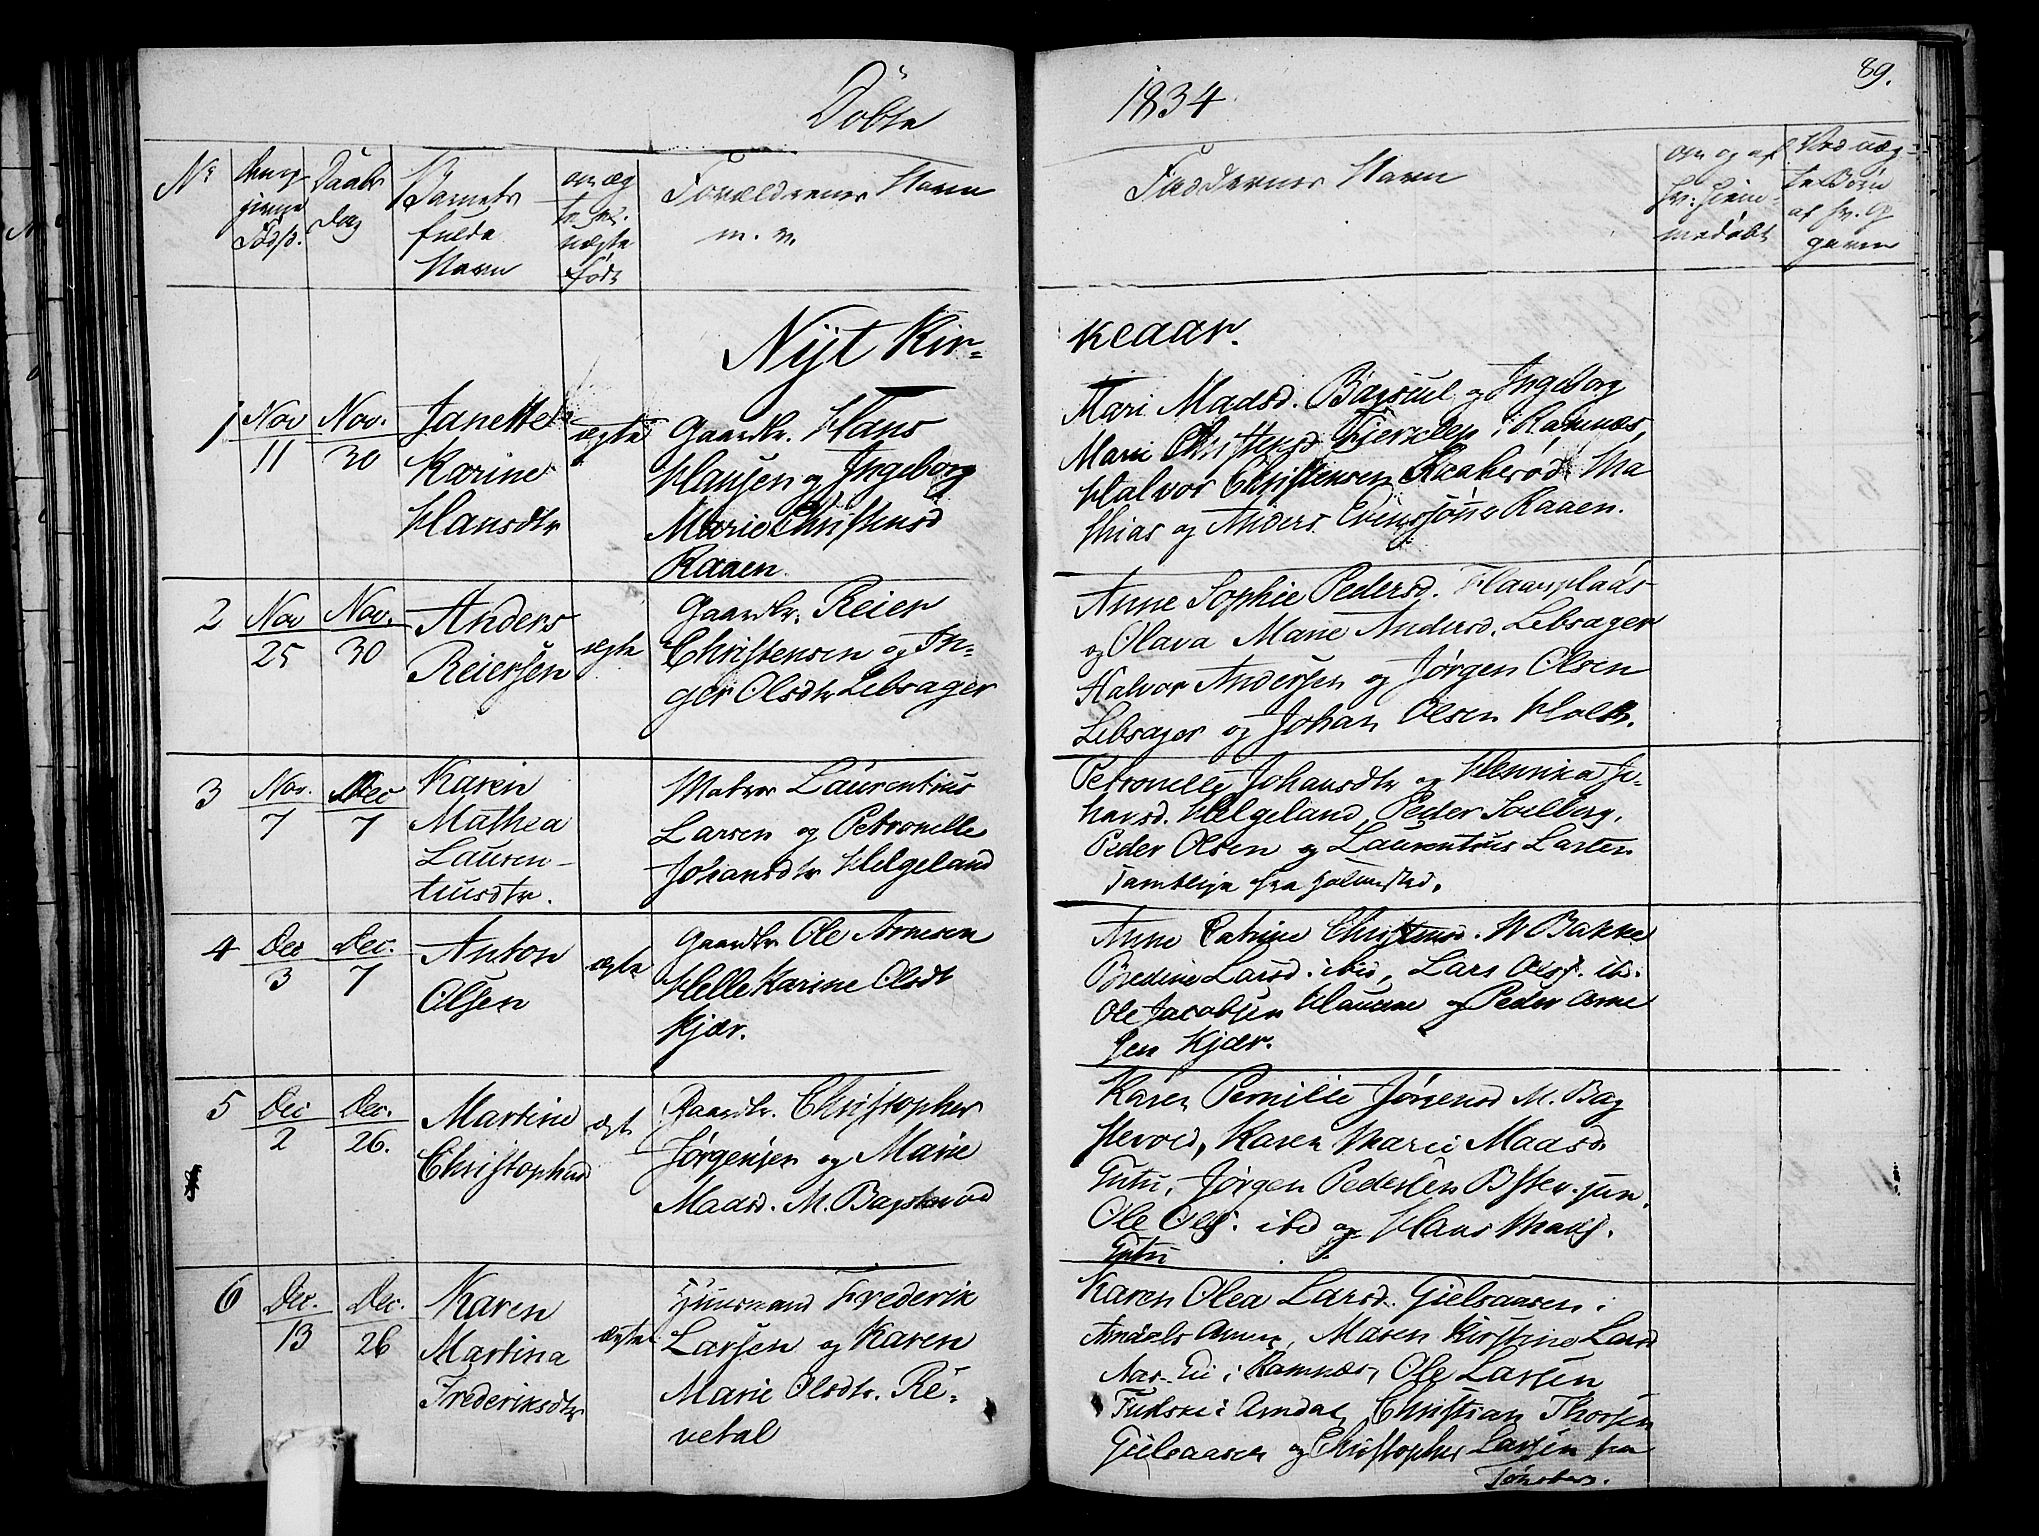 Döbte
1834
89.
No
Daabs
Dag
Barnets
fulde
Navn
om æg
te el.
uægte
født
Forældrenes Navn
m. v.
Faddernes Navn
om og af
hv: hiem-
medøbt
Ved uæg-
te Børn
Nÿt Kir-
keaar.
1
Nov
11
Nov.
30
Janette
Karine
Hansdtr
ægte
Gaardbr. Hans
Hansen og Ingeborg
Marie Christensd
Raaen
Mari Madsd. Bagsuul og Ingeborg
Marie Christensd i Ramnæs,
Halvor Christensen Raakerød Ma
thias og Anders Evensønne Raaen.
2
Nov
25
Nov.
30
Anders
Reiersen
ægte
Gaardbr. Reier
Christensen og In-
ger Olsdtr Lebsager
Anne Sophie Pedersd. Haavplads
og Olava Marie Andersd. Lebsager
Halvor Andersen og Jørgen Olsen
Lebsager og Johan Olsen Holt.
3
Nov.
7
Dec
7
Karen
Mathea
Lauren-
tiusdtr.
Matros Laurentius
Larsen og Petronelle
Johansdtr Helgeland
Petronelle Johansdtr og Henrika Jo-
hansd. Helgeland, Peder Solberg,
Peder Olsen og Laurentius Larsen
samtlige fra Holmestrd.
4
Dec
3
Dec.
7
Anton
Olsen
ægte
Gaardbr Ole Arnesen
Helle Karine Olsdt
Kjær.
Anne Catrine Christensd. N Bakke
Bredine Larsd. ibid, Lars Olss. ib.
Ole Jacobsen og Peder Arne
sen Kjær.
5
Dec
2
Dec.
26.
Martine
Christophersd
ægt
Gaardbr. Christopher
Jørgensen og Marie
Madsd. M. Bagstevold
Karen Pernille Jørgensd M. Bag
stevold, Karen Marie Madsd.
Tutu, Jørgen Pedersen
Ole Olss. ibd og Hans Mads.
Tutu
6
Dec.
13
Dec.
26
Karen
Martina
Frederiksdtr
ægte
Huusmand Frederik
Larsen og Karen
Marie Olsdtr. Re-
vetal
Karen Olea Larsd. Gielsaasen i
Arndals Annex, Maren Kirstine Larsd
i Ramnæs, Ole Larsen
i Arndal, Christian Thorsen
Gielsaasen og Christopher Larsen fra
Tønsberg.